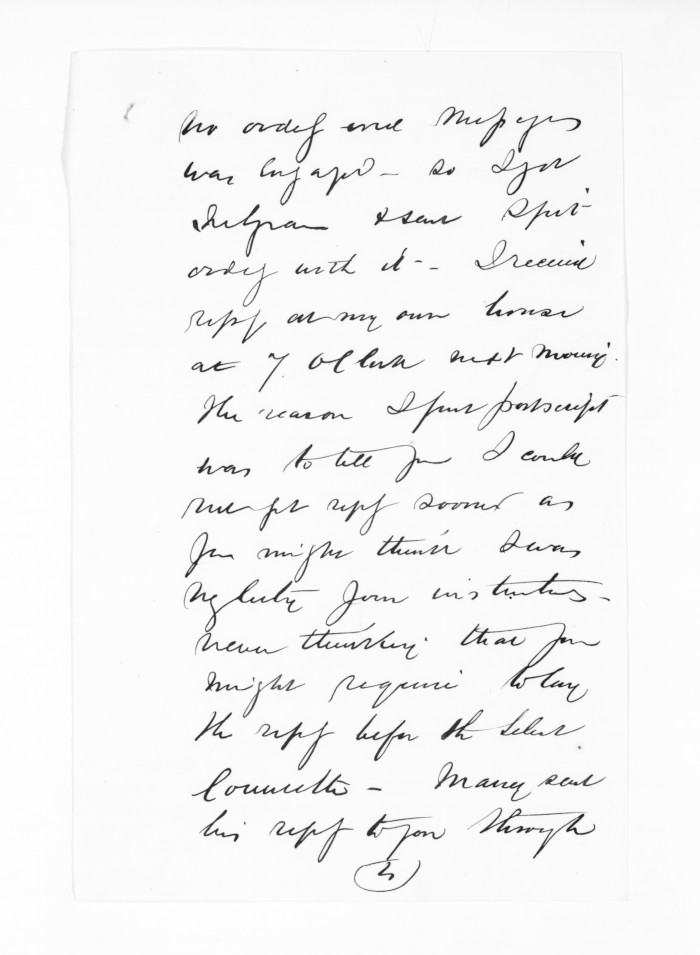 no ordly and Messages
was Engaged - so I got
Telegram & sent Spirit
ordly with it - I received
reply at my own house
at 7 OClock next Morning.
the reason I put postscript
was to tell you I could
not get reply sooner as
you might think I was
neglecting your instructions -
never thinking that you
might require to lay
the reply before the Select
Committee - Many sent
his reply to you through